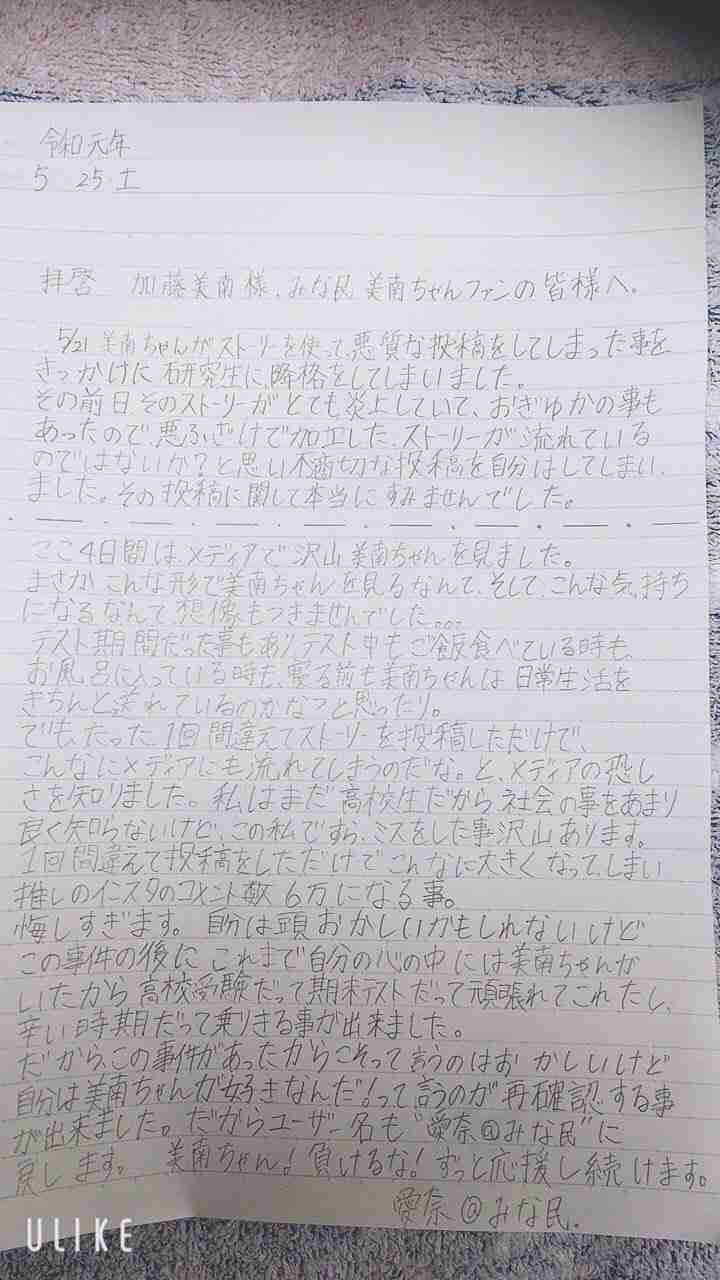 令和元年
5 25.土
拝啓 加藤美南様、みな民 美南ちゃんファンの皆様へ。
5/21 美南ちゃんがストーリーを使って、悪質な投稿をしてしまった事を
きっかけに 研究生に降格をしてしまいました。
その前日 そのストーリーがとても炎上していて、おぎゆかの事も
あったので、悪ふざけで加工した、ストーリーが流れている
のではないか?と思い不適切な投稿を自分はしてしまい
ました。その投稿に関して本当にすみませんでした。
ここ4日間は、メディアで沢山美南ちゃんを見ました。
まさか、こんな形で美南ちゃんを見るなんて、そして、こんな気持ち
になるなんて、想像もつきませんでした。。。
テスト期間だった事もあり、テスト中も、ご飯食べている時も、
お風呂に入っている時も、寝る前も美南ちゃんは 日常生活を
きちんと送れているのかなっと思ったり。
でも、たった 1回間違えてストーリーを投稿しただけで、
こんなにメディアにも流れてしまうのだな。と、メディアの恐し
さを知りました。私はまだ高校生だから社会の事をあまり
良く知らないけど、この私ですら、ミスをした事沢山あります。
1回間違えて投稿をしただけでこんなに大きくなって、しまい
推しのインスタのコメント数6万になる事。
悔しすぎます。自分は頭おかしいかもしれないけど
この事件の後に これまで自分の心の中には美南ちゃんが
いたから高校受験だって期末テストだって頑張れてこれたし、
辛い時期だって乗りきる事が出来ました。
だから、この事件があったからこそって言うのはおかしいけど
自分は美南ちゃんが好きなんだ!って言うのが再確認する事
が出来ました。だからユーザー名も"愛奈@みな民"に
戻します。 美南ちゃん!負けるな!ずっと応援し続けます。
愛奈@みな民.
ULIKE